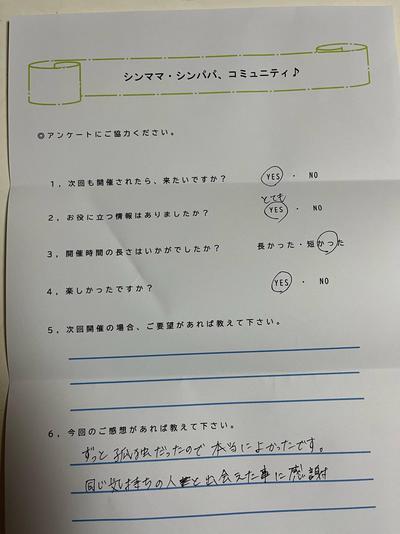 シンママ・シンパパ、コミュニティ♪
◎アンケートにご協力ください。
1，次回も開催されたら、来たいですか？ YES ・ NO
とても
2，お役に立つ情報はありましたか？ YES ・ NO
3，開催時間の長さはいかがでしたか？ 長かった・短かった
4，楽しかったですか？ YES ・ NO
5，次回開催の場合、ご要望があれば教えて下さい。
6，今回のご感想があれば教えて下さい。
ずっと孤独だったので本当によかったです。
同じ気持ちの人と出会えた事に感謝